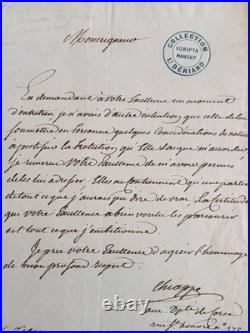 Monseigneur
COLLECTION
SCRIPTA
MANENT
L. DERIARD
En demandant à votre Excellence un moment
d'entretien je n'avais d'autre intention que celle de lui
soumettre en personne quelques Considérations de nature
à justifier la protection qu'Elle daigne m'accorder
je remercie Votre Excellence de m'avoir permis
de les lui adresser; Elles ne contiennent qu'une partie
de tout ce que j'aurais pu dire de vrai. La Certitude
que votre Excellence a bien voulu les parcourir
est tout ce que j'ambitionne.
Je prie votre Excellence d'agréer l'hommage
de mon profond respect
Chiappe